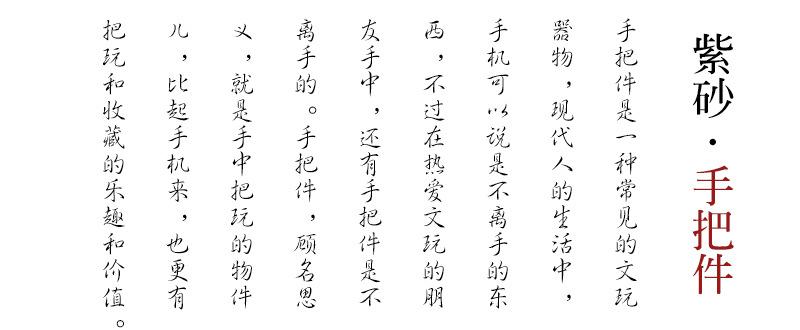 紫砂·手把件
手把件是一种常见的文玩
器物，现代人的生活中，
手机可以说是不离手的东
西，不过在热爱文玩的朋
友手中，还有手把件是不
离手的。手把件，顾名思
义，就是手中把玩的物件
儿，比起手机来，也更有
把玩和收藏的乐趣和价值。